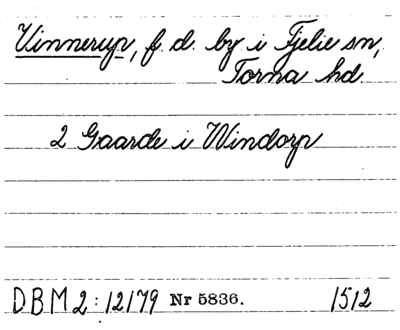 Vinnerup, f. d. by i Fjelie sn,
Torna hd.
2 Gaarde i Windorp
DBM 2:12179 Nr 5836. 1512